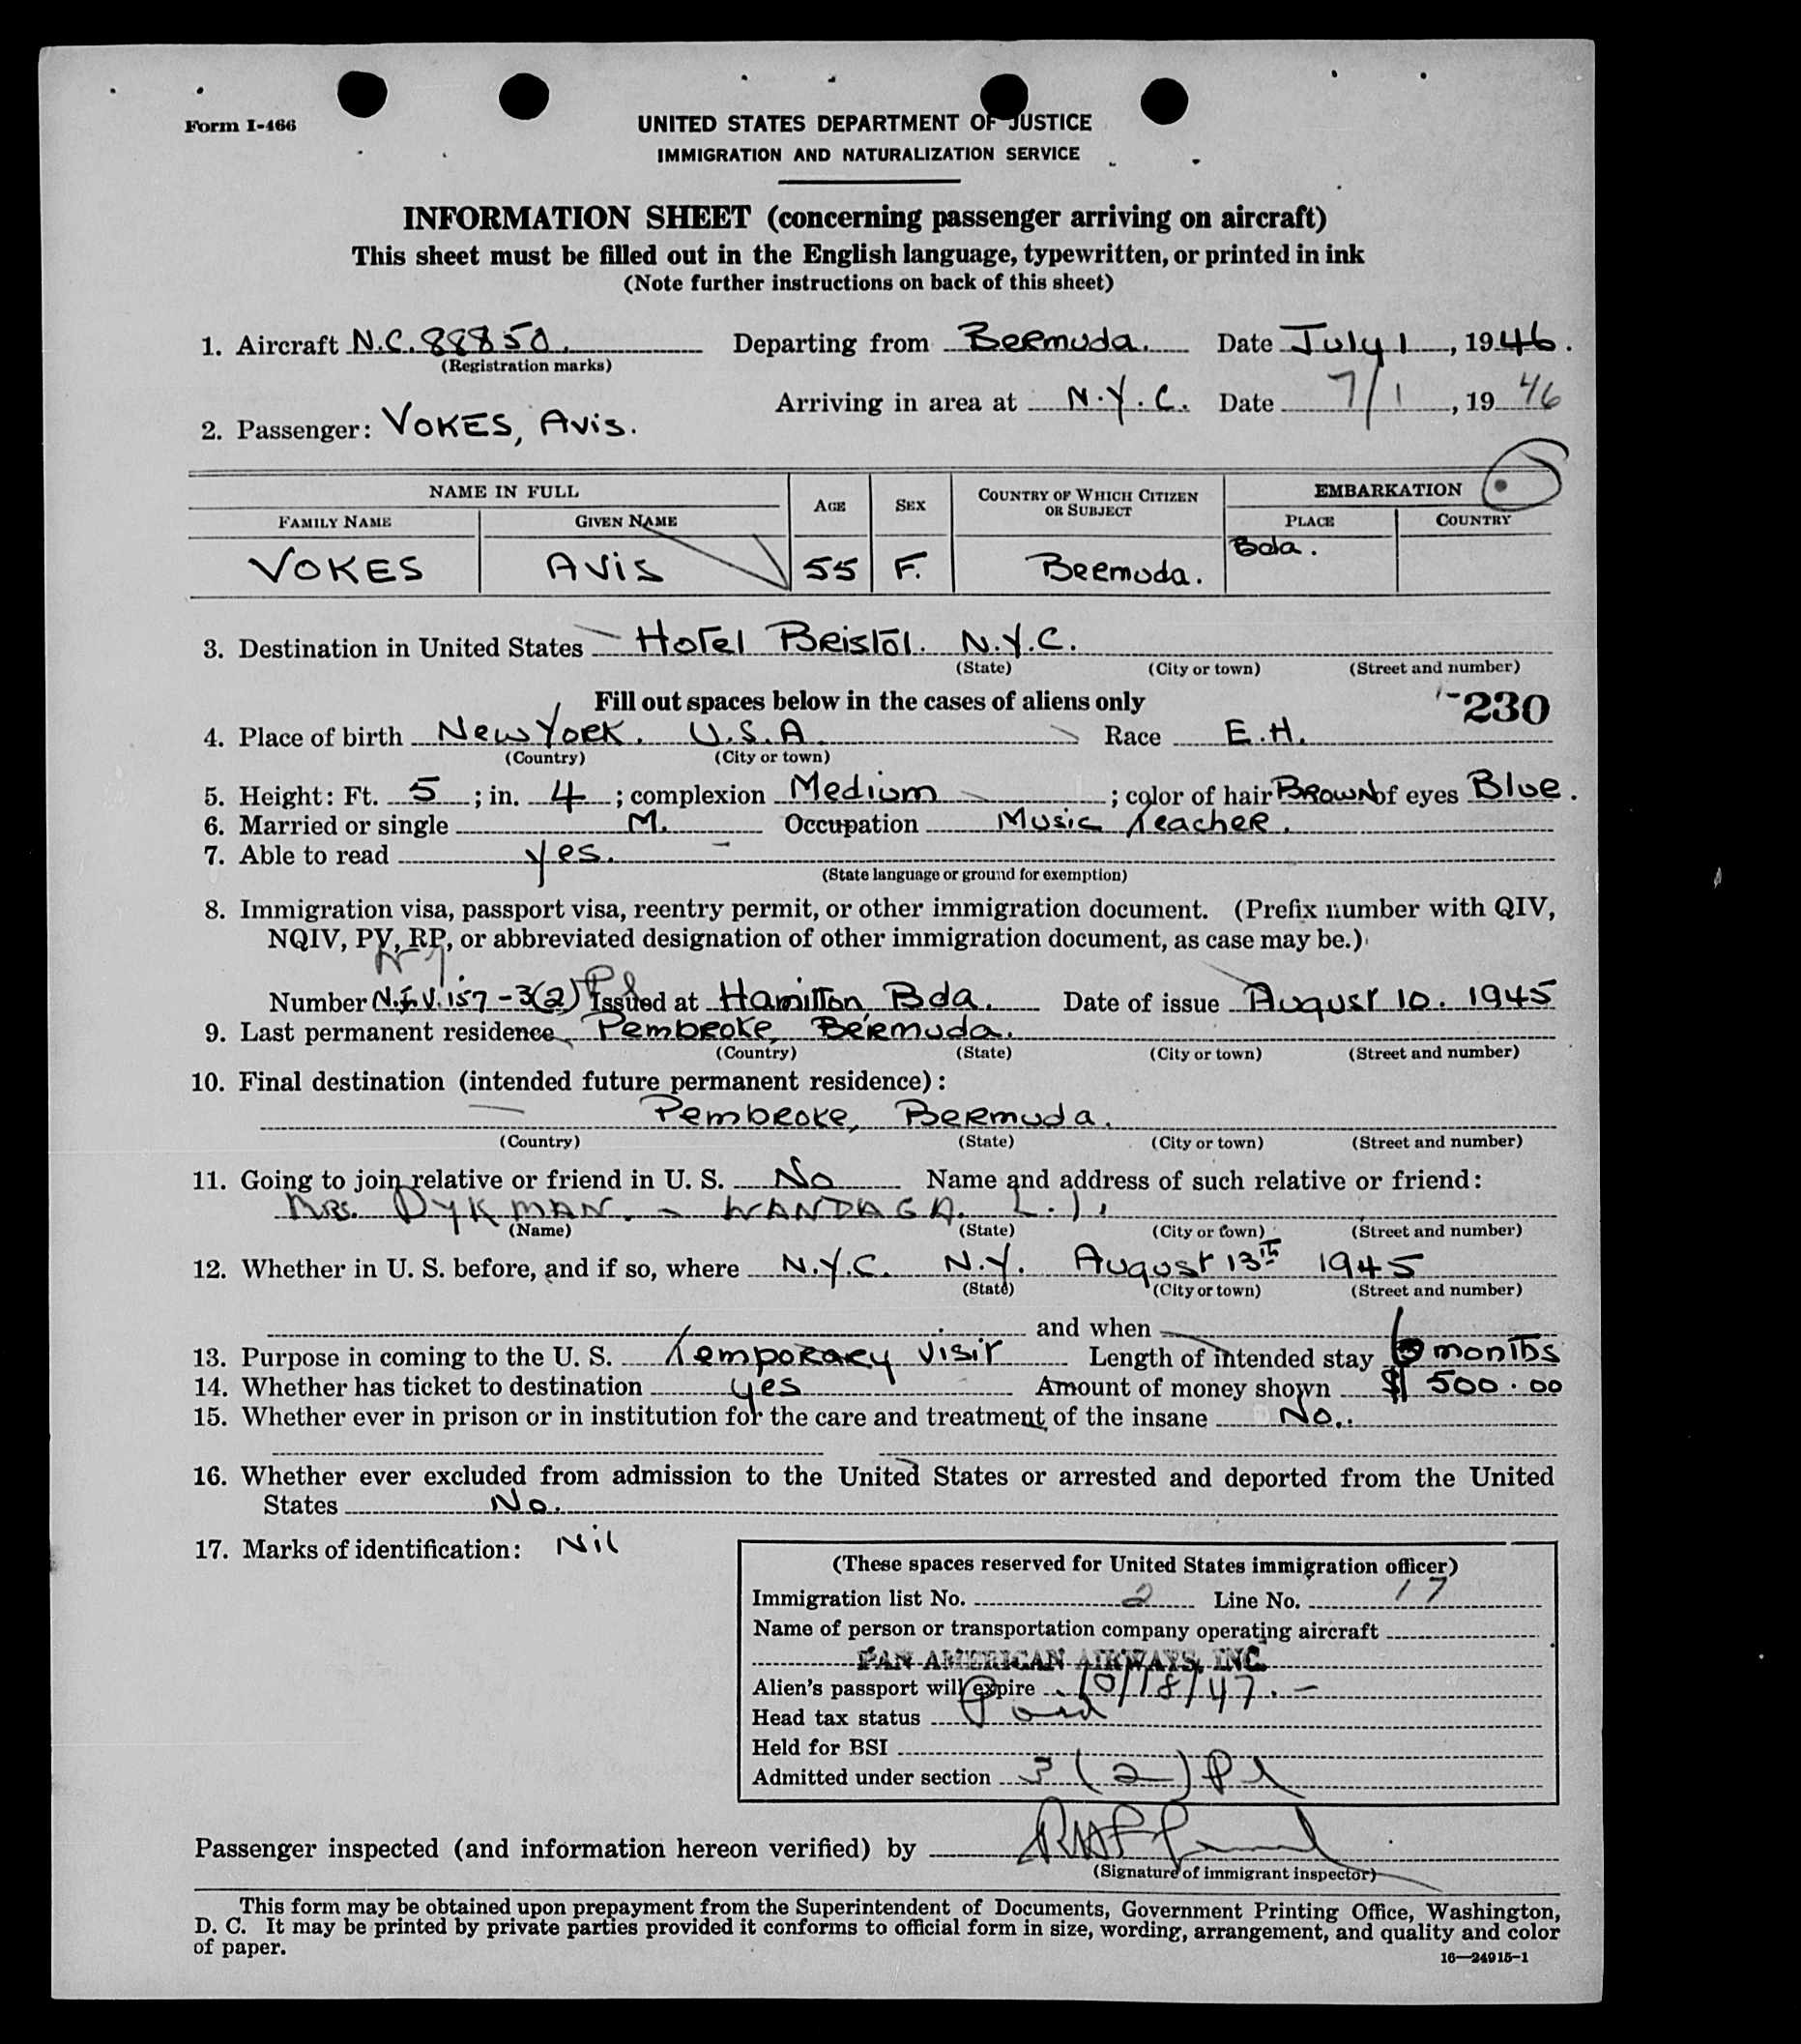 Form I-466
UNITED STATES DEPARTMENT OF JUSTICE
IMMIGRATION AND NATURALIZATION SERVICE
INFORMATION SHEET (concerning passenger arriving on aircraft)
This sheet must be filled out in the English language, typewritten, or printed in ink
(Note further instructions on back of this sheet)
1. Aircraft N.C. 88850. Departing from Bermuda. Date July 1, 1946.
(Registration marks)
Arriving in area at N.Y.C. Date 7/1, 1946
2. Passenger: VOKES, Avis.
NAME IN FULL AGE SEX COUNTRY OF WHICH CITIZEN OR SUBJECT EMBARKATION
FAMILY NAME GIVEN NAME PLACE COUNTRY
VOKES AVIS 55 F. Bermuda. Bda.
3. Destination in United States Hotel Bristol. N.Y.C.
(State) (City or town) (Street and number)
Fill out spaces below in the cases of aliens only 230
4. Place of birth New York. U.S.A. Race E.H.
(Country) (City or town)
5. Height: Ft. 5; in. 4; complexion Medium; color of hair BROWN of eyes Blue.
6. Married or single M. Occupation Music Teacher.
7. Able to read yes.
(State language or ground for exemption)
8. Immigration visa, passport visa, reentry permit, or other immigration document. (Prefix number with QIV,
NQIV, PV, RP, or abbreviated designation of other immigration document, as case may be.)
Number N.I.V. 157-3(2) Issued at Hamilton, Bda. Date of issue August 10. 1945
9. Last permanent residence Pembroke, Bermuda.
(Country) (State) (City or town) (Street and number)
10. Final destination (intended future permanent residence):
Pembroke, Bermuda.
(Country) (State) (City or town) (Street and number)
11. Going to join relative or friend in U. S. No Name and address of such relative or friend:
MRS. DYKMAN. - WANDAGA. L.I.
(Name) (State) (City or town) (Street and number)
12. Whether in U. S. before, and if so, where N.Y.C. N.Y. August 13th 1945
(State) (City or town) (Street and number)
and when
13. Purpose in coming to the U. S. Temporary visit Length of intended stay 6 months
14. Whether has ticket to destination yes Amount of money shown $500.00
15. Whether ever in prison or in institution for the care and treatment of the insane No.
16. Whether ever excluded from admission to the United States or arrested and deported from the United
States No.
17. Marks of identification: Nil
(These spaces reserved for United States immigration officer)
Immigration list No. 2 Line No. 17
Name of person or transportation company operating aircraft
PAN AMERICAN AIRWAYS, INC.
Alien's passport will expire 10/18/47.-
Head tax status Paid
Held for BSI
Admitted under section 3(2) Pl
Passenger inspected (and information hereon verified) by
(Signature of immigrant inspector)
This form may be obtained upon prepayment from the Superintendent of Documents, Government Printing Office, Washington,
D. C. It may be printed by private parties provided it conforms to official form in size, wording, arrangement, and quality and color
of paper.
16—24915-1